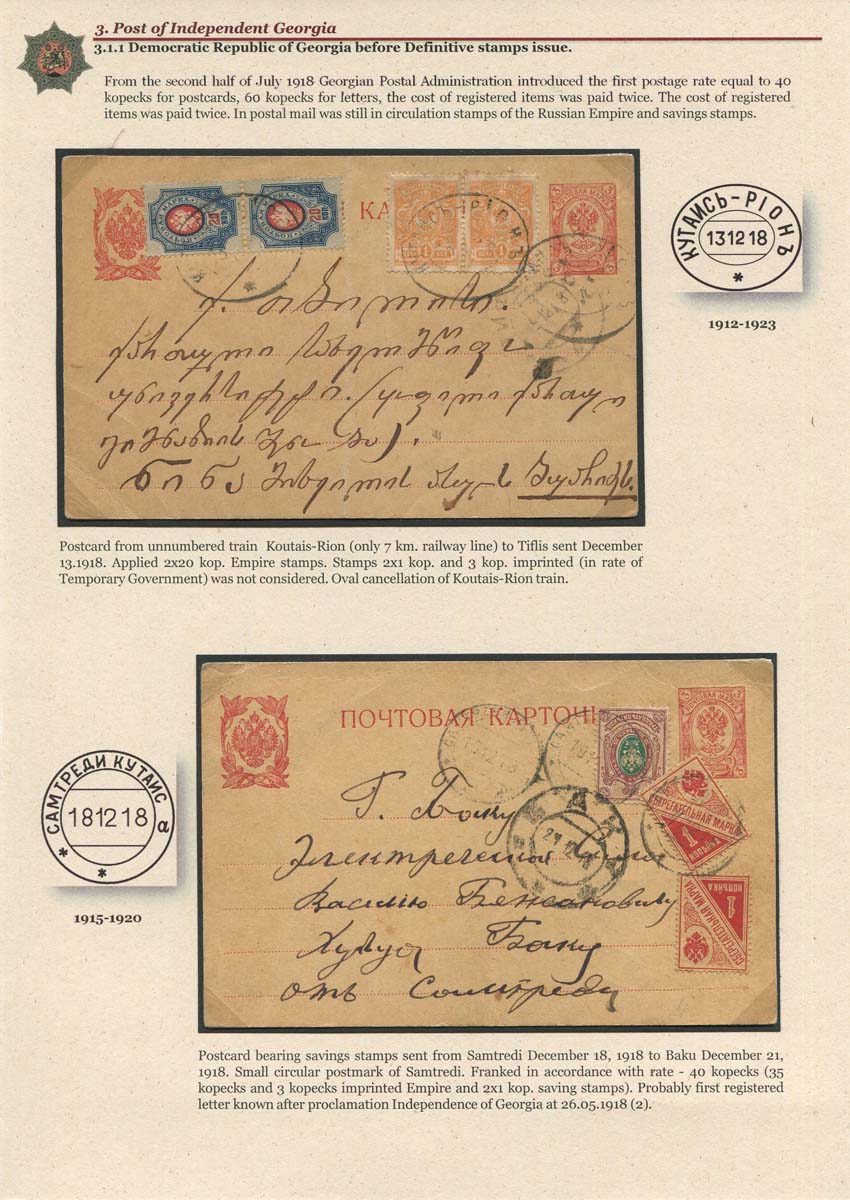 3. Post of Independent Georgia
3.1.1 Democratic Republic of Georgia before Definitive stamps issue.
From the second half of July 1918 Georgian Postal Administration introduced the first postage rate equal to 40
kopecks for postcards, 60 kopecks for letters, the cost of registered items was paid twice. The cost of registered
items was paid twice. In postal mail was still in circulation stamps of the Russian Empire and savings stamps.
КА
ПОЧТОВАЯ МАРКА
3
3
КУТАИСЪ-РІОНЪ
131218
1912-1923
ქ. თბილისი.
ქართული სახელმწიფო
უნივერსიტეტი.
ნინა
Postcard from unnumbered train Koutais-Rion (only 7 km. railway line) to Tiflis sent December
13.1918. Applied 2x20 kop. Empire stamps. Stamps 2x1 kop. and 3 kop. imprinted (in rate of
Temporary Government) was not considered. Oval cancellation of Koutais-Rion train.
ПОЧТОВАЯ КАРТОЧ
ПОЧТОВАЯ МАРКА
3
3
СБЕРЕГАТЕЛЬНАЯ МАРКА
1
КОПѢЙКА
СБЕРЕГАТЕЛЬНАЯ МАРКА
1
КОПѢЙКА
САМТРЕДИ КУТАИС
181218
а
1915-1920
Г. Баку
Василію
Баку
отъ Самтреди
Postcard bearing savings stamps sent from Samtredi December 18, 1918 to Baku December 21,
1918. Small circular postmark of Samtredi. Franked in accordance with rate - 40 kopecks (35
kopecks and 3 kopecks imprinted Empire and 2x1 kop. saving stamps). Probably first registered
letter known after proclamation Independence of Georgia at 26.05.1918 (2).